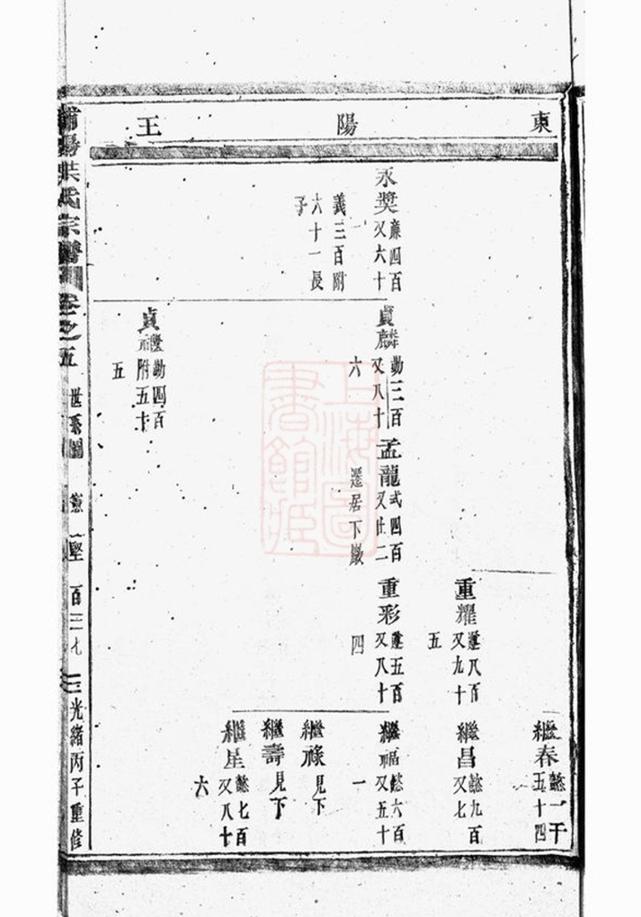 東陽王
繼春
懿一千
五十四
重耀
遜八百
又九十
五
繼昌
懿九百
又七
永獎
廉四百
又六十
一
義三百附
六十一長
子
貞麟
勛三百
又八十
六
孟龍
式四百
又廿二
遷居下嚴
重彩
遜五百
又八十
四
繼福
懿六百
又五十
一
繼祿
見下
繼壽
見下
繼星
懿七百
又八十
六
貞
勛四百
附五十
五
氏宗譜 卷之五 世系圖 百三七 光緒丙子重修
上海圖書館藏